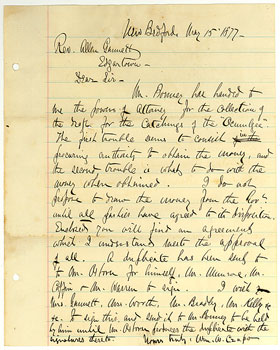 New Bedford, May 15" 1877 -
Rev. Allen Gannett
Edgartown -
Dear Sir -
Mr. Bonney has handed to
me the powers of Attorney for the collection of
the draft for the catchings of the "Ocmulgee".
The first trouble seems to consist in the
procuring authority to obtain the money, and
the second trouble is what to do with the
money when obtained. I do not
propose to draw the money from the Govt
until all parties have agreed to its disposition.
Enclosed you will find an agreement
which I understand meets the approval
of all. A duplicate has been sent to
Mr. Osborn for himself, Mr. Munroe, Mr.
Coffin & Mr. Warren to sign. I wish
Mrs. Gannett, Mrs. Worth, Mr. Bradley, Mrs. Kelley
to sign this, and send it to Mr. Bonney to be held
by him until Mr. Osborn forwards the duplicate with the
signatures thereto. Yours truly, Wm. W. Crapo